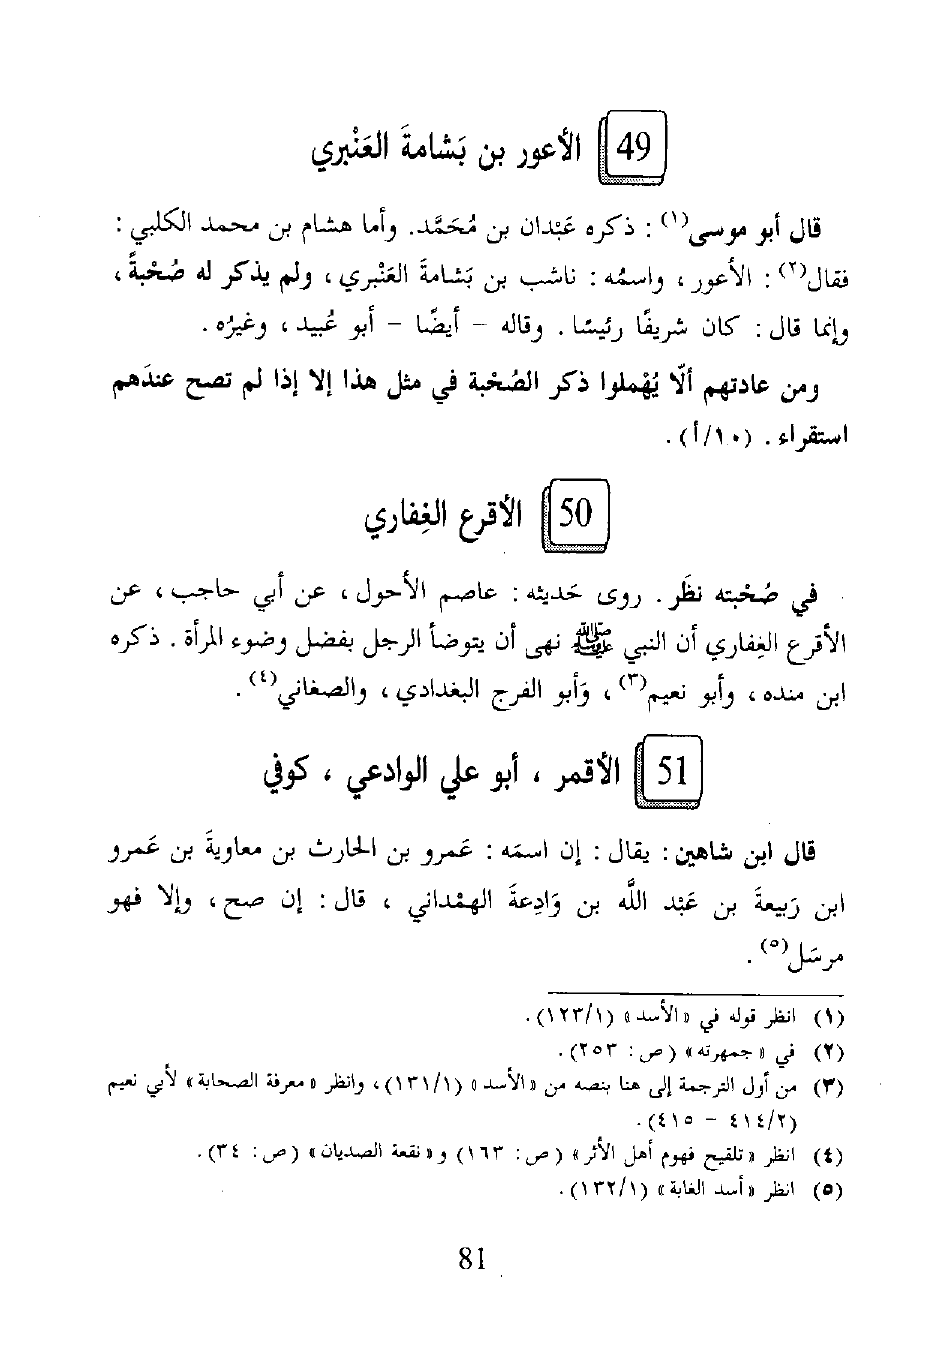 49 الأعور بن بَشامةَ العَنْبري
قال أبو موسى(١) : ذكره عَبْدان بن مُحَمَّد. وأما هشام بن محمد الكلبي :
فقال(٢) : الأعور ، واسمُه : ناشب بن بَشامةَ العَنْبري ، ولم يذكر له صُحْبةً ،
وإنما قال : كان شريفًا رئيسًا . وقاله – أيضًا – أبو عُبيد ، وغيرُه .
ومن عادتهم ألّا يُهْملوا ذكر الصُحْبة في مثل هذا إلا إذا لم تصح عندَهم
استقراء . (١٠/أ) .
50 الأقرع الغِفاري
في صُحْبته نظَر . روى حَديثه : عاصم الأحول ، عن أبي حاجب ، عن
الأقرع الغِفاري أن النبي ﷺ نهى أن يتوضأ الرجل بفضل وضوء المرأة . ذكره
ابن منده ، وأبو نعيم(٣) ، وَأبو الفرج البغدادي ، والصغاني(٤) .
51 الأقمر ، أبو علي الوادعي ، كوفي
قال ابن شاهين : يقال : إن اسمَه : عَمرو بن الحارث بن معاويةَ بن عَمرو
ابن رَبيعةَ بن عَبْد اللَّه بن وَادِعةَ الهمْداني ، قال : إن صح ، وإلا فهو
مرسَل(٥) .
(١) انظر قوله في «الأسد» (١/١٢٣).
(٢) في «جمهرته» (ص: ٢٥٣).
(٣) من أول الترجمة إلى هنا بنصه من «الأسد» (١/١٣١)، وانظر «معرفة الصحابة» لأبي نعيم
(٢/٤١٤ – ٤١٥).
(٤) انظر «تلقيح فهوم أهل الأثر» (ص: ١٦٣) و«نقعة الصديان» (ص: ٣٤).
(٥) انظر «أسد الغابة» (١/١٣٢).
81